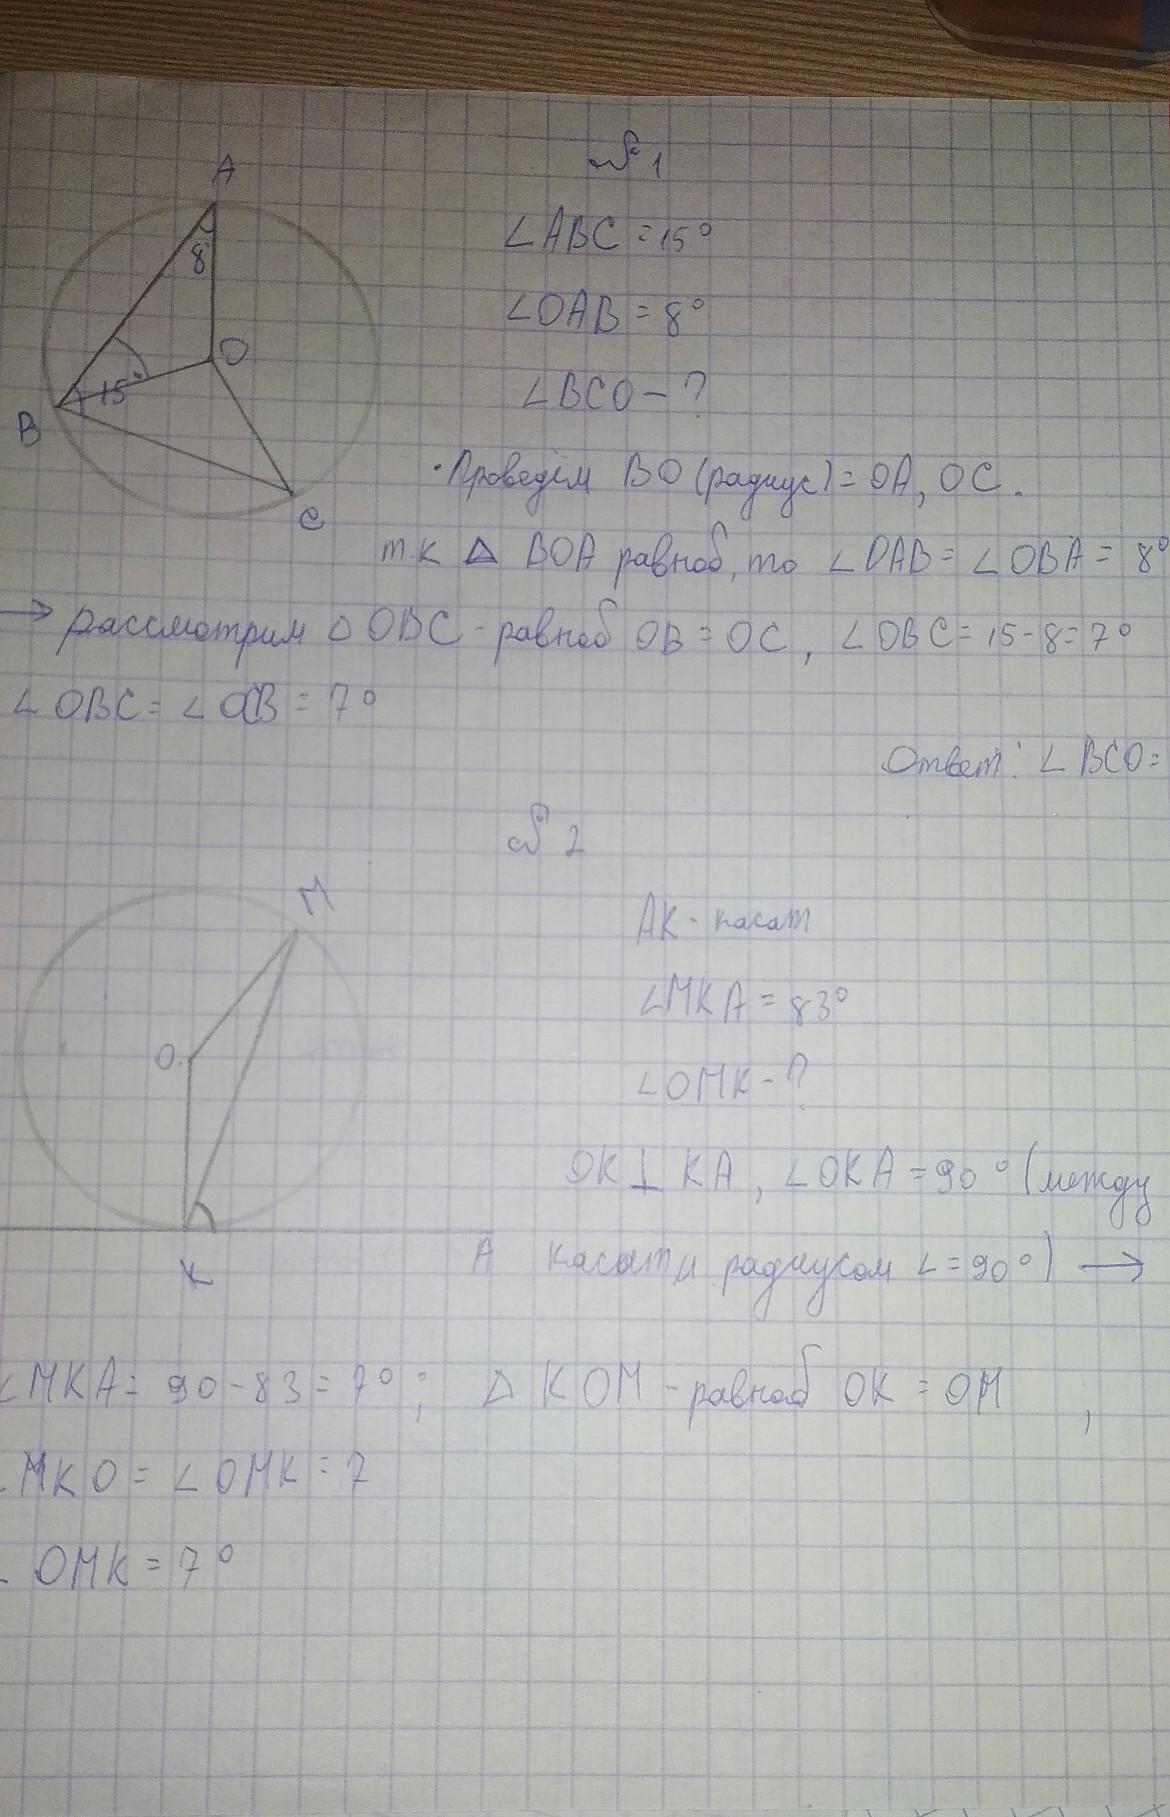 №1
A
∠ABC = 15°
8°
∠OAB = 8°
O
15°
∠BCO - ?
B
• Проведём BO (радиус) = OA, OC.
C
т.к △ BOA равноб, то ∠OAB = ∠OBA = 8°
→ рассмотрим △ OBC - равноб OB = OC, ∠OBC = 15-8=7°
∠OBC = ∠OCB = 7°
Ответ: ∠BCO=
№2
M
AK - касат
∠MKA = 83°
O
∠OMK - ?
OK⊥KA, ∠OKA = 90° (между
K
A
касат и радиусом ∠=90°) →
∠MKA = 90-83=7°; △ KOM - равноб OK = OM,
MKO = ∠OMK = 7
OMK = 7°